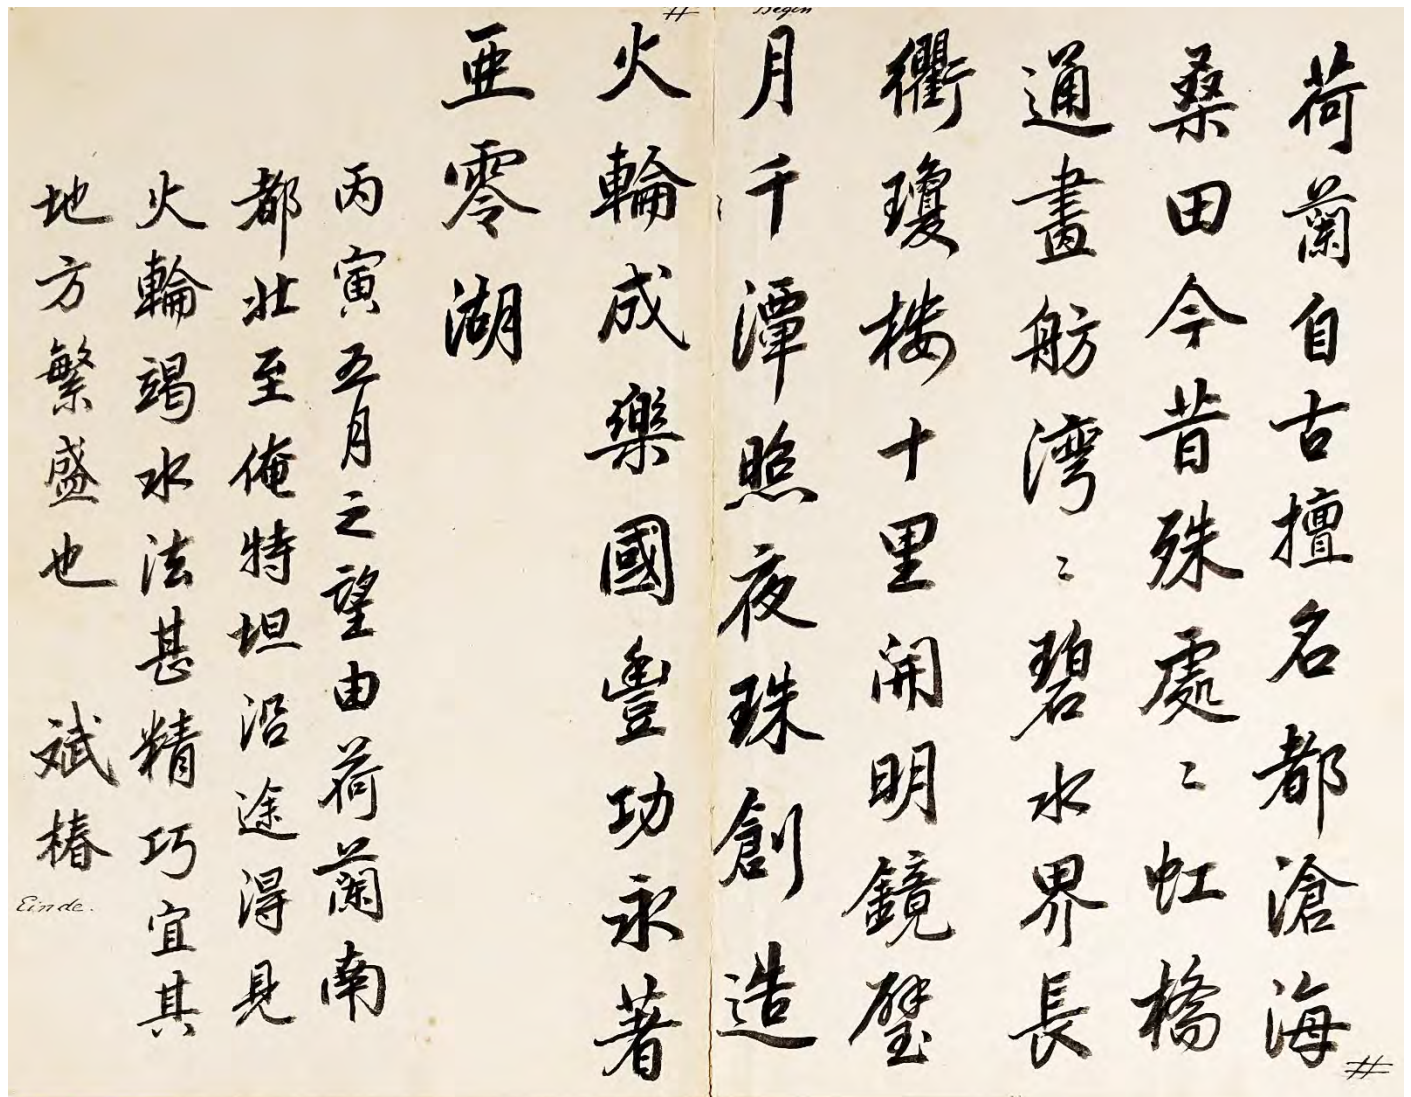 Begin
荷蘭自古擅名都滄海
桑田今昔殊處〻虹橋
通畫舫湾〻碧水界長
衢瓊楼十里開明鏡璧
月千潭照夜珠創造
火輪成樂國豐功永著
亜零湖
丙寅五月之望由荷蘭南
都壯至俺特坦沿途得見
火輪竭水法甚精巧宜其
地方繁盛也 斌椿
Einde.